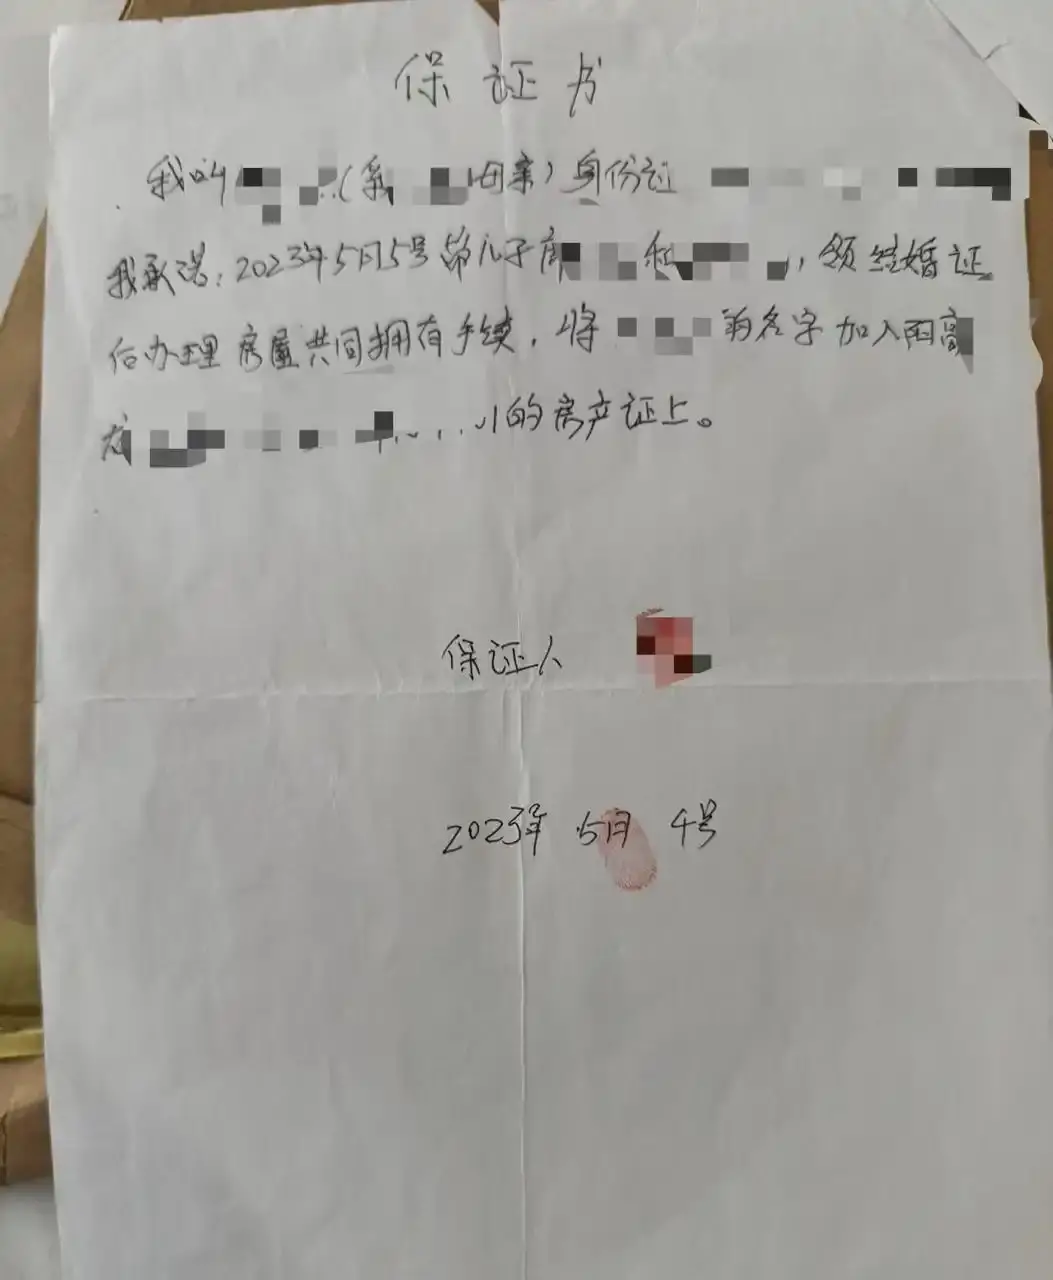 保证书
我叫 (系 母亲) 身份证
我承诺:2023年5月5号 儿子 和 ,领结婚证
后办理房屋共同拥有手续,将 的名字加入阳高
的房产证上。
保证人
2023年 5月 4号